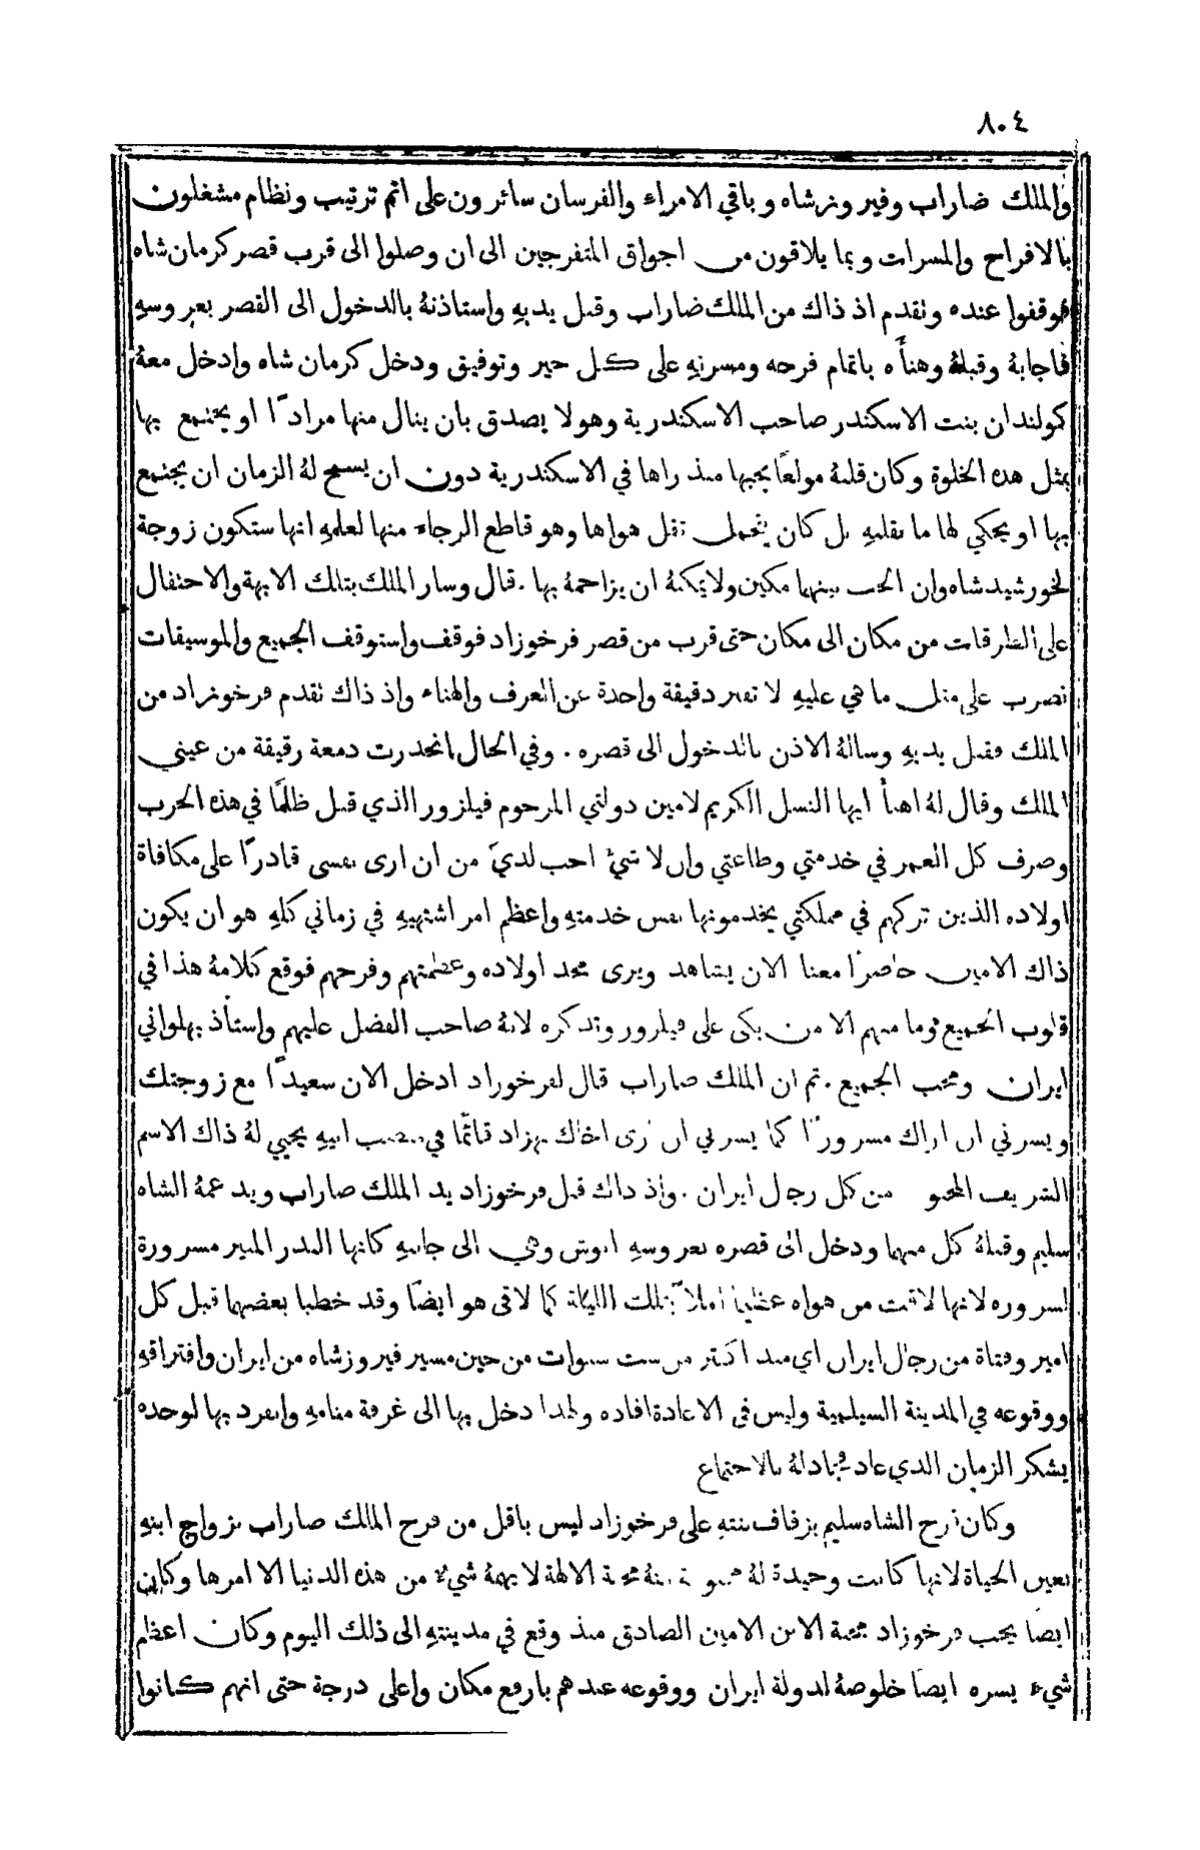 ٨٠٤
والملك ضاراب وفيروزشاه وباقي الامراء والفرسان سائرون على اتم ترتيب ونظام مشغلون
بالافراح والمسرات وبما يلاقون من اجواق المتفرجين الى ان وصلوا الى قرب قصر كرمان شاه
فوقفوا عنده وتقدم اذ ذاك من الملك ضاراب وقبل يديهِ واستاذنهُ بالدخول الى القصر بعروسهِ
فاجابهُ وقبلهُ وهنأه باتمام فرحه ومسرتهِ على كل خير وتوفيق ودخل كرمان شاه وادخل معهُ
كولندان بنت الاسكندر صاحب الاسكندرية وهو لا يصدق بان ينال منها مرادًا او يجتمع بها
بمثل هذه الخلوة وكان قلبهُ مولعًا بحبها منذ راها في الاسكندرية دون ان يسمح لهُ الزمان ان يجتمع
بها او يحكي لها ما بقلبهِ بل كان يتحمل ثقل هواها وهو قاطع الرجاء منها لعلمهِ انها ستكون زوجة
لخورشيد شاه وان الحب بينهما مكين ولا يمكنهُ ان يزاحمهُ بها . قال وسار الملك بتلك الابهة والاحتفال
على الطرقات من مكان الى مكان حتى قرب من قصر فرخوزاد فوقف واستوقف الجميع والموسيقات
تضرب على مثل ما هي عليهِ لا تفتر دقيقة واحدة عن العزف والهناء واذ ذاك تقدم فرخوزاد من
الملك فقبل يديهِ وسالهُ الاذن بالدخول الى قصره . وفي الحال انحدرت دمعة رقيقة من عيني
الملك وقال لهُ اهنأ ايها النسل الكريم لامين دولتي المرحوم فيلزور الذي قتل ظلمًا في هذه الحرب
وصرف كل العمر في خدمتي وطاعتي وان لا شيء احب لديّ من ان ارى نفسي قادرًا على مكافاة
اولاده الذين تركهم في مملكتي يخدمونها نفس خدمتهِ واعظم امر اشتهيهِ في زماني كلهِ هو ان يكون
ذاك الامين حاضرًا معنا الان يشاهد ويرى مجد اولاده وعظمتهم وفرحهم فوقع كلامهُ هذا في
قلوب الجميع وما منهم الا من بكى على فيلزور وتذكره لانهُ صاحب الفضل عليهم واستاذ بهلواني
ايران ومحب الجميع . ثم ان الملك ضاراب قال لفرخوزاد ادخل الان سعيدًا مع زوجتك
ويسرني ان اراك مسرورًا كما يسرني ان ارى اخاك بهزاد قائمًا في منصب ابيهِ يحيي لهُ ذاك الاسم
الشريف من كل رجال ايران . واذ ذاك قبل فرخوزاد يد الملك ضاراب ويد عمهُ الشاه
سليم وقبلهُ كل منهما ودخل الى قصره بعروسهِ انوش وهي الى جانبهِ كانها البدر المنير مسرورة
لسروره لانها لاقت من هواه عظيمًا املاً بتلك الليلة كما لاقى هو ايضًا وقد خطبا بعضهما قبل كل
امير وفتاة من رجال ايران اي منذ اكثر من ست سنوات من حين مسير فيروزشاه من ايران وافتراقهِ
ووقوعه في المدينة السيلمية وليس في الاعادة افاده ولهذا دخل بها الى غرفة منامهِ وانفرد بها لوحده
يشكر الزمان الذي عاد بالاجتماع
وكان فرح الشاه سليم بزفاف بنتهِ على فرخوزاد ليس باقل من فرح الملك ضاراب بزواج ابنهِ
بعين الحياة لانها كانت وحيدة لهُ محبة الالهة لا يهمهُ شيء من هذه الدنيا الا امرها وكان
ايضًا يحب فرخوزاد محبة الابن الامين الصادق منذ وقع في مدينتهِ الى ذلك اليوم وكان اعظم
شيء يسره ايضًا خلوصهُ لدولة ايران ووقوعه عندهم بارفع مكان واعلى درجة حتى انهم كانوا